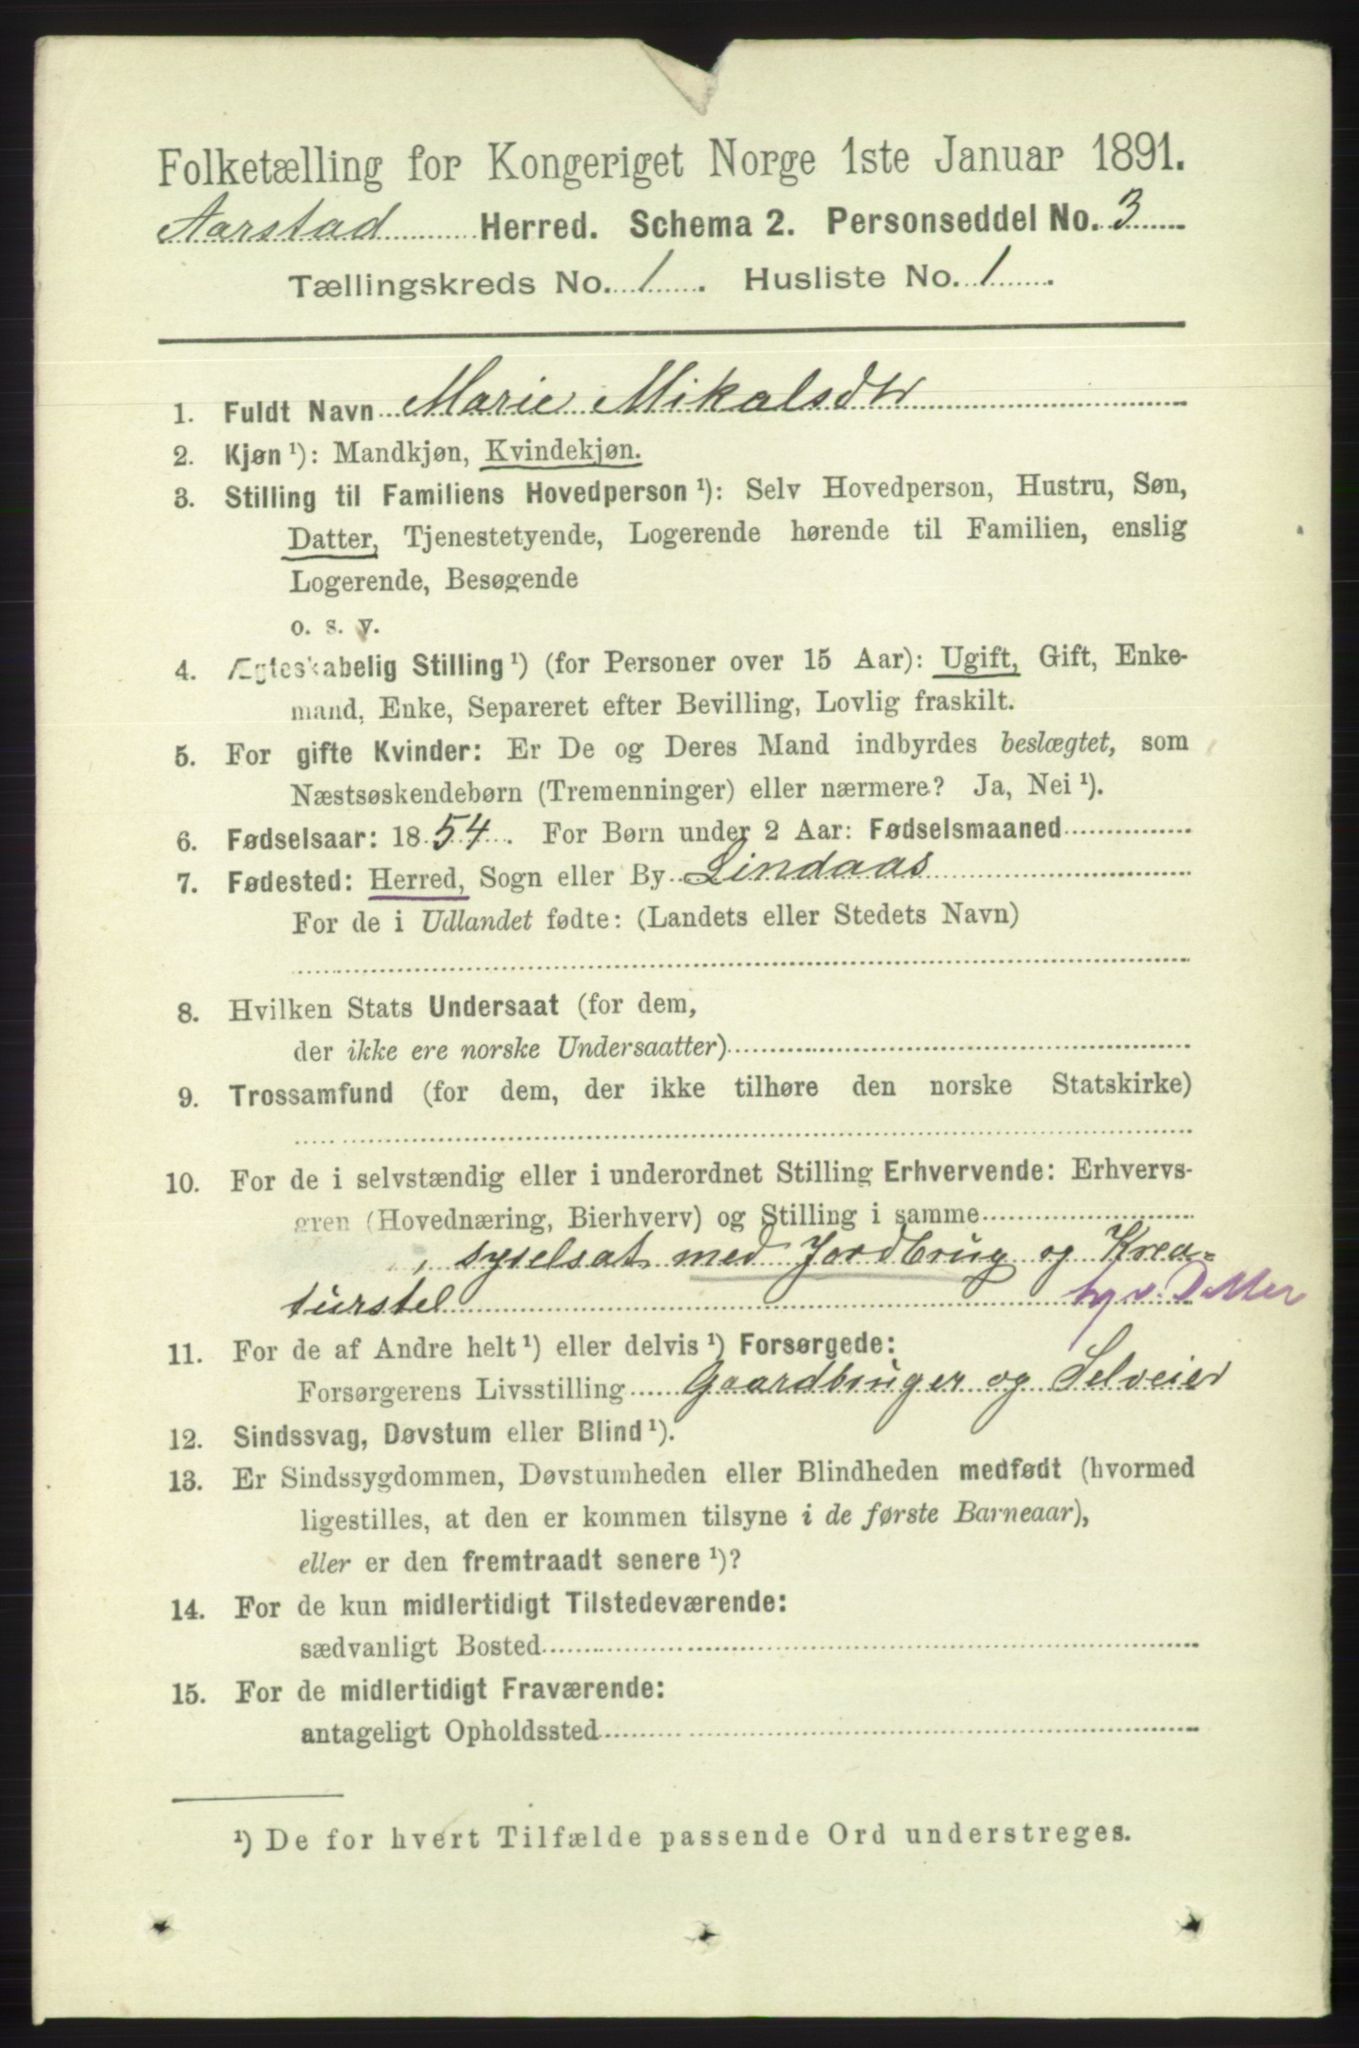 Folketælling for Kongeriget Norge 1ste Januar 1891.
Aarstad Herred. Schema 2. Personseddel No. 3
Tællingskreds No. 1. Husliste No. 1.
1. Fuldt Navn Marie Mikalsdtr
2. Kjøn ¹): Mandkjøn, Kvindekjøn.
3. Stilling til Familiens Hovedperson ¹): Selv Hovedperson, Hustru, Søn,
Datter, Tjenestetyende, Logerende hørende til Familien, enslig
Logerende, Besøgende
o. s. v.
4. Ægteskabelig Stilling ¹) (for Personer over 15 Aar): Ugift, Gift, Enke-
mand, Enke, Separeret efter Bevilling, Lovlig fraskilt.
5. For gifte Kvinder: Er De og Deres Mand indbyrdes beslægtet, som
Næstsøskendebørn (Tremenninger) eller nærmere? Ja, Nei ¹).
6. Fødselsaar: 1854. For Børn under 2 Aar: Fødselsmaaned
7. Fødested: Herred, Sogn eller By Lindaas
For de i Udlandet fødte: (Landets eller Stedets Navn)
8. Hvilken Stats Undersaat (for dem,
der ikke ere norske Undersaatter)
9. Trossamfund (for dem, der ikke tilhøre den norske Statskirke)
10. For de i selvstændig eller i underordnet Stilling Erhvervende: Erhvervs-
gren (Hovednæring, Bierhverv) og Stilling i samme
, syselsat med Jordbrug og Krea-
turstel
11. For de af Andre helt ¹) eller delvis ¹) Forsørgede:
Forsørgerens Livsstilling Gaardbruger og Selveier
12. Sindssvag, Døvstum eller Blind ¹).
13. Er Sindssygdommen, Døvstumheden eller Blindheden medfødt (hvormed
ligestilles, at den er kommen tilsyne i de første Barneaar),
eller er den fremtraadt senere ¹)?
14. For de kun midlertidigt Tilstedeværende:
sædvanligt Bosted
15. For de midlertidigt Fraværende:
antageligt Opholdssted
¹) De for hvert Tilfælde passende Ord understreges.